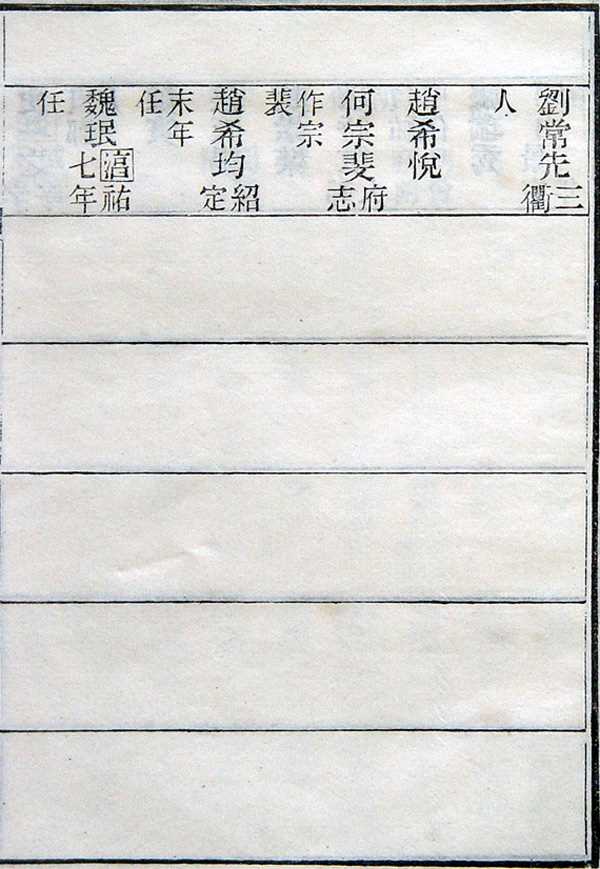 劉常先三衢
人
趙希悅
何宗斐府志
作宗
裴
趙希均紹定
末年
任
魏珉湻祐七年
任